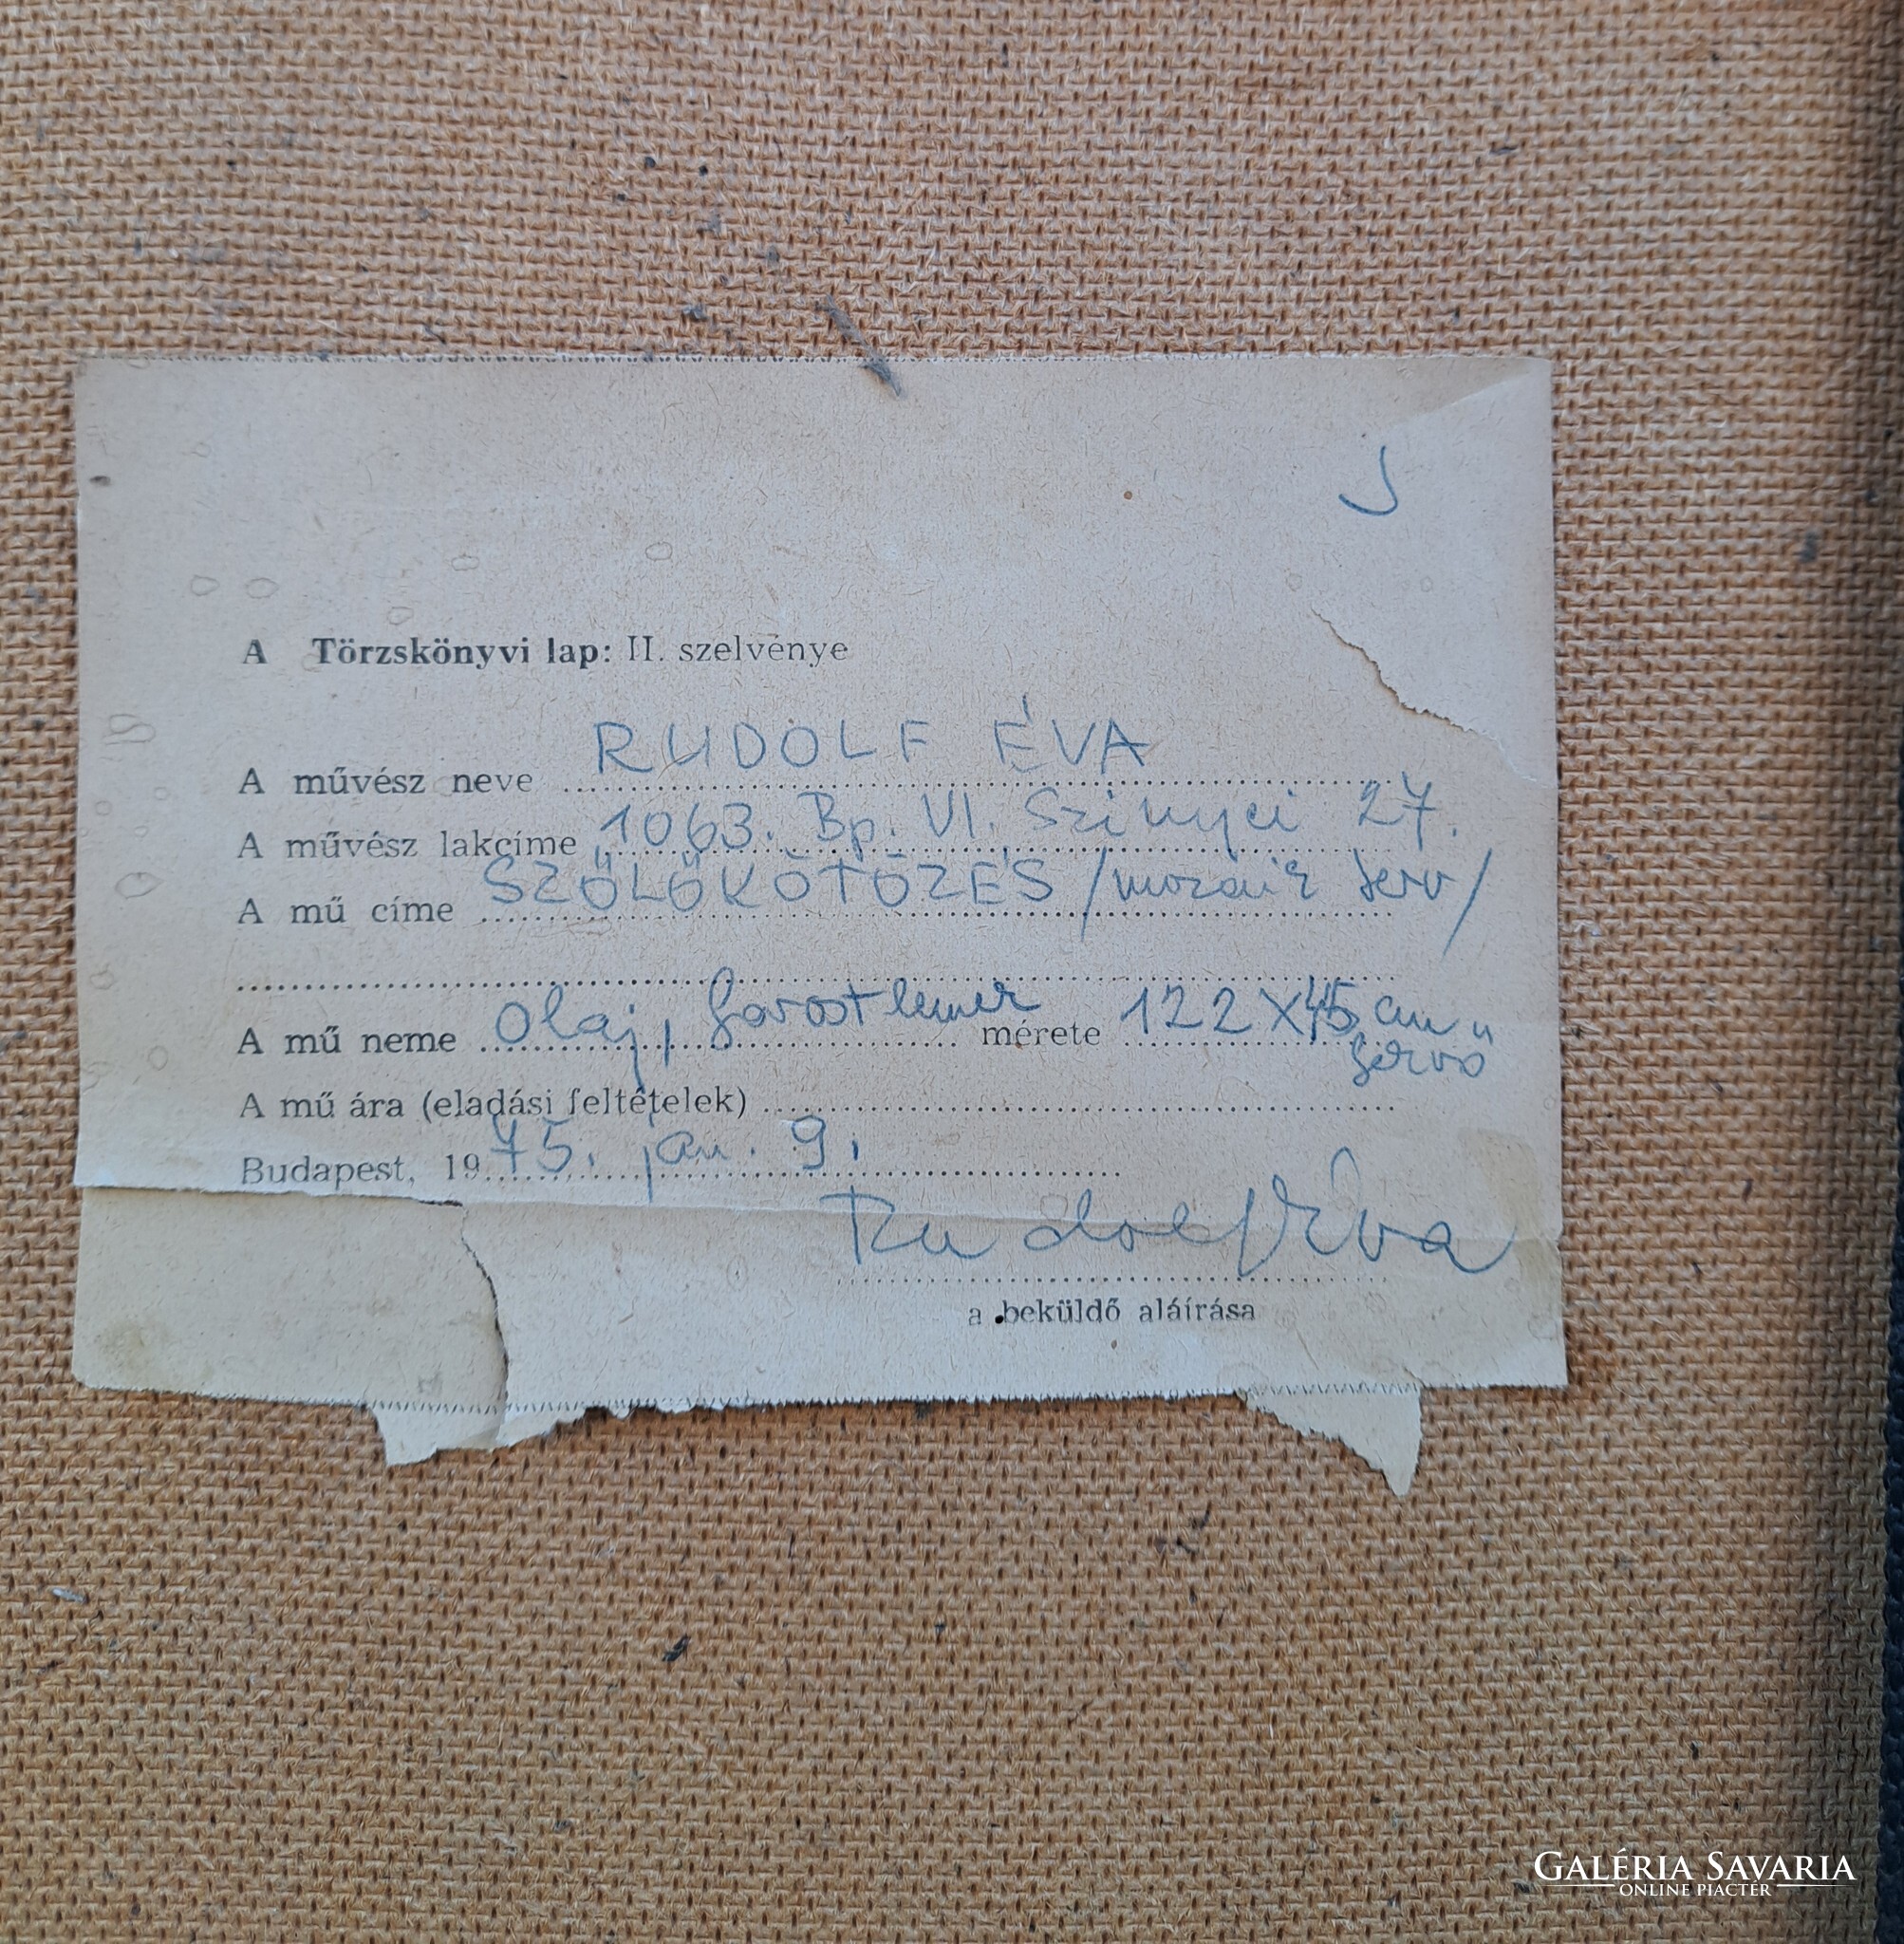 J
A Törzskönyvi lap: II. szelvénye
A művész neve RUDOLF ÉVA
A művész lakcíme 1063. Bp. VI. Szinyei 27.
A mű címe SZŐLŐKÖTÖZÉS /mozaik terv/
A mű neme Olaj, farostlemez mérete 122 X 45 cm
A mű ára (eladási feltételek)
Budapest, 1975. jan. 9.
Rudolf Éva
a beküldő aláírása
GALÉRIA SAVARIA
ONLINE PIACTÉR